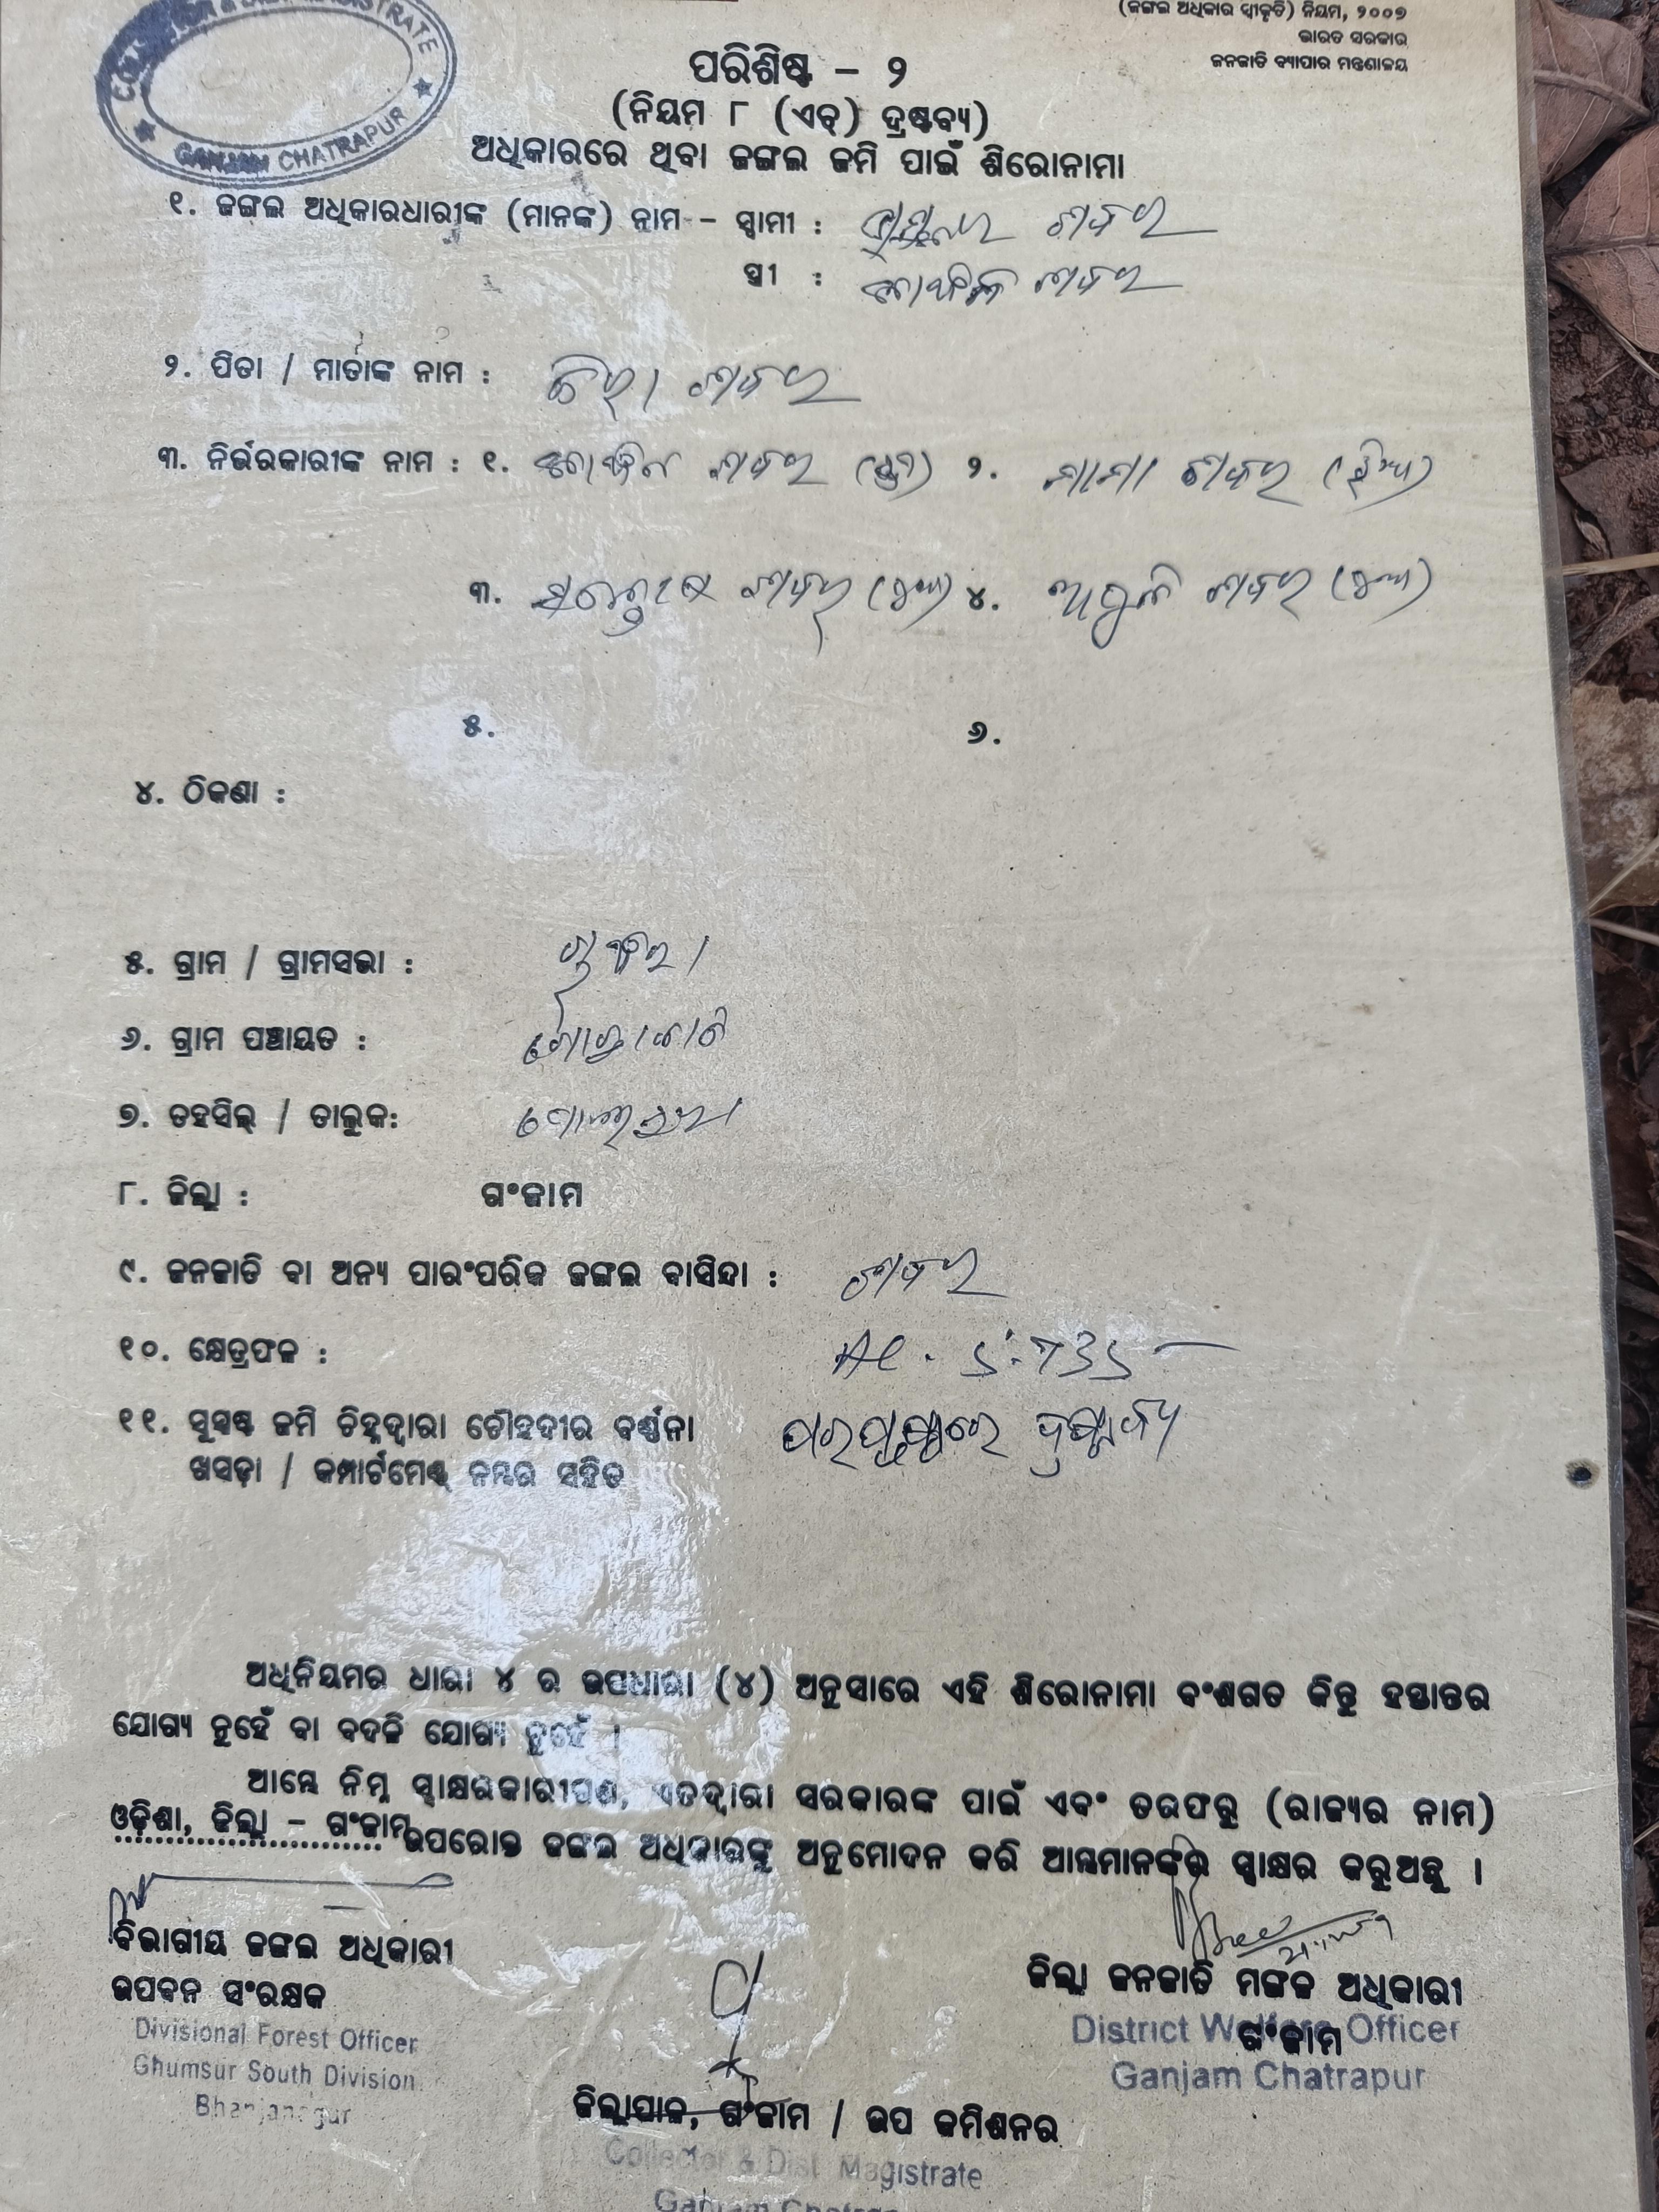 MAGISTRATE
GANJAM CHATRAPUR
(ଜଙ୍ଗଲ ଅଧିକାର ସ୍ୱୀକୃତି) ନିୟମ, ୨୦୦୭
ଭାରତ ସରକାର
ଜନଜାତି ବ୍ୟାପାର ମନ୍ତ୍ରଣାଳୟ
ପରିଶିଷ୍ଟ – ୨
(ନିୟମ ୮ (ଏଚ୍) ଦ୍ରଷ୍ଟବ୍ୟ)
ଅଧିକାରରେ ଥିବା ଜଙ୍ଗଲ ଜମି ପାଇଁ ଶିରୋନାମା
୧. ଜଙ୍ଗଲ ଅଧିକାରଧାରୀଙ୍କ (ମାନଙ୍କ) ନାମ – ସ୍ୱାମୀ : ଶବର
ସ୍ତ୍ରୀ : ଶବର
୨. ପିତା / ମାତାଙ୍କ ନାମ : ଶବର
୩. ନିର୍ଭରକାରୀଙ୍କ ନାମ : ୧. ଶବର (ପୁଅ) ୨. ଶବର (ଝିଅ)
୩. ଶବର (ଝିଅ) ୪. ଶବର (ଝିଅ)
୫. ୬.
୪. ଠିକଣା :
୫. ଗ୍ରାମ / ଗ୍ରାମସଭା :
୬. ଗ୍ରାମ ପଞ୍ଚାୟତ :
୭. ତହସିଲ୍ / ତାଲୁକ:
୮. ଜିଲ୍ଲା : ଗଂଜାମ
୯. ଜନଜାତି ବା ଅନ୍ୟ ପାରଂପରିକ ଜଙ୍ଗଲ ବାସିନ୍ଦା : ଶବର
୧୦. କ୍ଷେତ୍ରଫଳ : AC. 5.735
୧୧. ସୁସ୍ପଷ୍ଟ ଜମି ଚିହ୍ନଦ୍ୱାରା ଚୌହଦୀର ବର୍ଣ୍ଣନା ପରପୃଷ୍ଠାରେ ଦ୍ରଷ୍ଟବ୍ୟ
ଖସଡ଼ା / କମ୍ପାର୍ଟମେଣ୍ଟ୍ ନମ୍ବର ସହିତ
ଅଧିନିୟମର ଧାରା ୪ ର ଉପଧାରା (୪) ଅନୁସାରେ ଏହି ଶିରୋନାମା ବଂଶଗତ କିନ୍ତୁ ହସ୍ତାନ୍ତର
ଯୋଗ୍ୟ ନୁହେଁ ବା ବଦଳି ଯୋଗ୍ୟ ନୁହେଁ ।
ଆମ୍ଭେ ନିମ୍ନ ସ୍ୱାକ୍ଷରକାରୀଗଣ, ଏତଦ୍ୱାରା ସରକାରଙ୍କ ପାଇଁ ଏବଂ ତରଫରୁ (ରାଜ୍ୟର ନାମ)
ଓଡ଼ିଶା, ଜିଲ୍ଲା – ଗଂଜାମ ଉପରୋକ୍ତ ଜଙ୍ଗଲ ଅଧିକାରଙ୍କୁ ଅନୁମୋଦନ କରି ଆମ୍ଭମାନଙ୍କର ସ୍ୱାକ୍ଷର କରୁଅଛୁ ।
ବିଭାଗୀୟ ଜଙ୍ଗଲ ଅଧିକାରୀ
ଉପବନ ସଂରକ୍ଷକ
Divisional Forest Officer
Ghumsur South Division
Bhanjanagar
ଜିଲ୍ଲା ଜନଜାତି ମଙ୍ଗଳ ଅଧିକାରୀ
ଗଂଜାମ
District Welfare Officer
Ganjam Chatrapur
ଜିଲ୍ଲାପାଳ, ଗଂଜାମ / ଉପ କମିଶନର
Collector & Dist. Magistrate